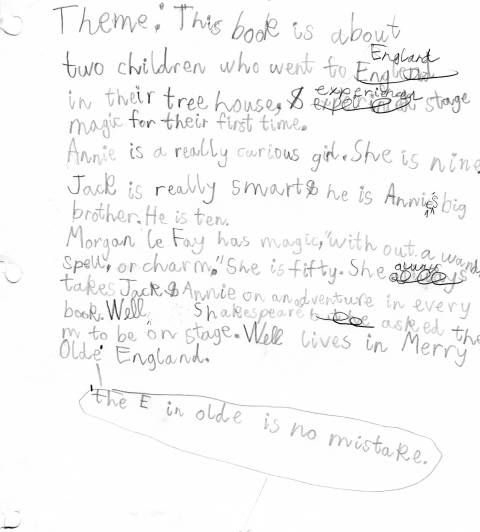 Theme: This book is about
two children who went to England
in their tree house, & experienced stage
magic for their first time.
Annie is a really curious girl. She is nine
Jack is really smart & he is Annie's big
brother. He is ten.
Morgan le Fay has magic, "with out a wand,
spell, or charm." She is fifty. She always
takes Jack & Annie on an adventure in every
book. Well Shakespeare asked the
m to be on stage. Well lives in Merry
Olde England.
the E in olde is no mistake.